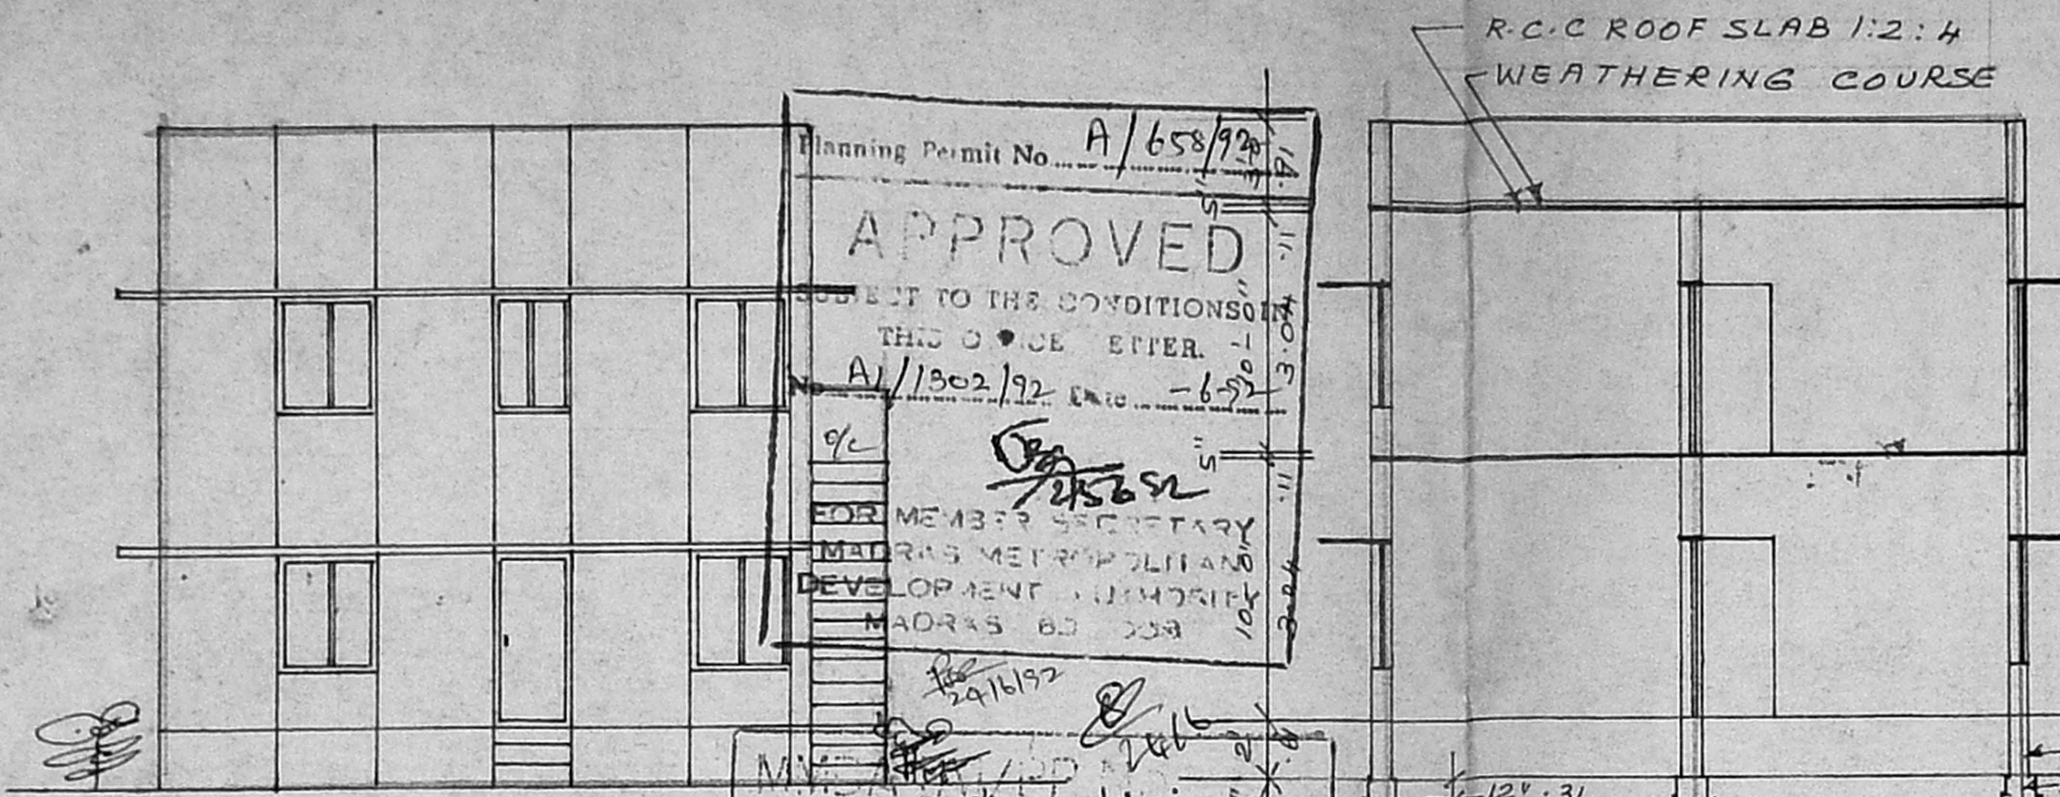 R.C.C ROOF SLAB 1:2:4
WEATHERING COURSE
Planning Permit No. A/658/92
APPROVED
SUBJECT TO THE CONDITIONS IN
THIS OFFICE LETTER.
No A1/1302/92 Date -6-92
FOR MEMBER SECRETARY
MADRAS METROPOLITAN
DEVELOPMENT AUTHORITY
MADRAS
24/6/92
246
5"
·11
3.04
5"
·11
10'-0"
3.04
12" .31